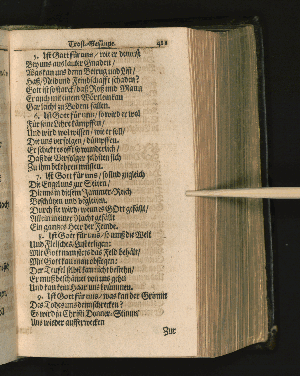 Trost-Gesänge. 911
5. Ist Gott für uns / wie er dann ist
Bey uns aus lauter Gnaden /
Was kan uns denn Betrug und List /
Haß / Neid und Feindschafft schaden?
Gott ist so starck / daß Roß und Mann
Er auch mit einem Wörtlein kan
Gar leicht zu Boden fällen.
6. Ist Gott für uns / so wird er wol
Für seine Lehre kämpffen /
Und wird wol wissen / wie er soll /
Die uns verfolgen / dämpffen.
Er schickt es offt so wunderlich /
Daß die Verfolger selbsten sich
Zu ihm bekehren müssen.
7. Ist Gott für uns / so sind zugleich
Die Engel uns zur Seiten /
Die uns in diesem Jammer-Reich
Beschützen und begleiten.
Durch sie wird / wenn es GOtt gefällt /
In einer Nacht gefällt
Ein gantzes Heer der Feinde.
8. Ist Gott für uns / so muß die Welt
Und Fleisches-Lust erligen:
Mit Gott man stets das Feld behält /
Mit Gott kan man obsiegen:
Der Teufel selbst kan nicht bestehn /
Er muß beschämet von uns gehn
Und kan kein Haar uns krümmen.
9. Ist Gott für uns / was kan der Grimm
Des Todes uns denn schrecken?
Es wird ja Christi Donner-Stimm
Uns wieder aufferwecken
Zur